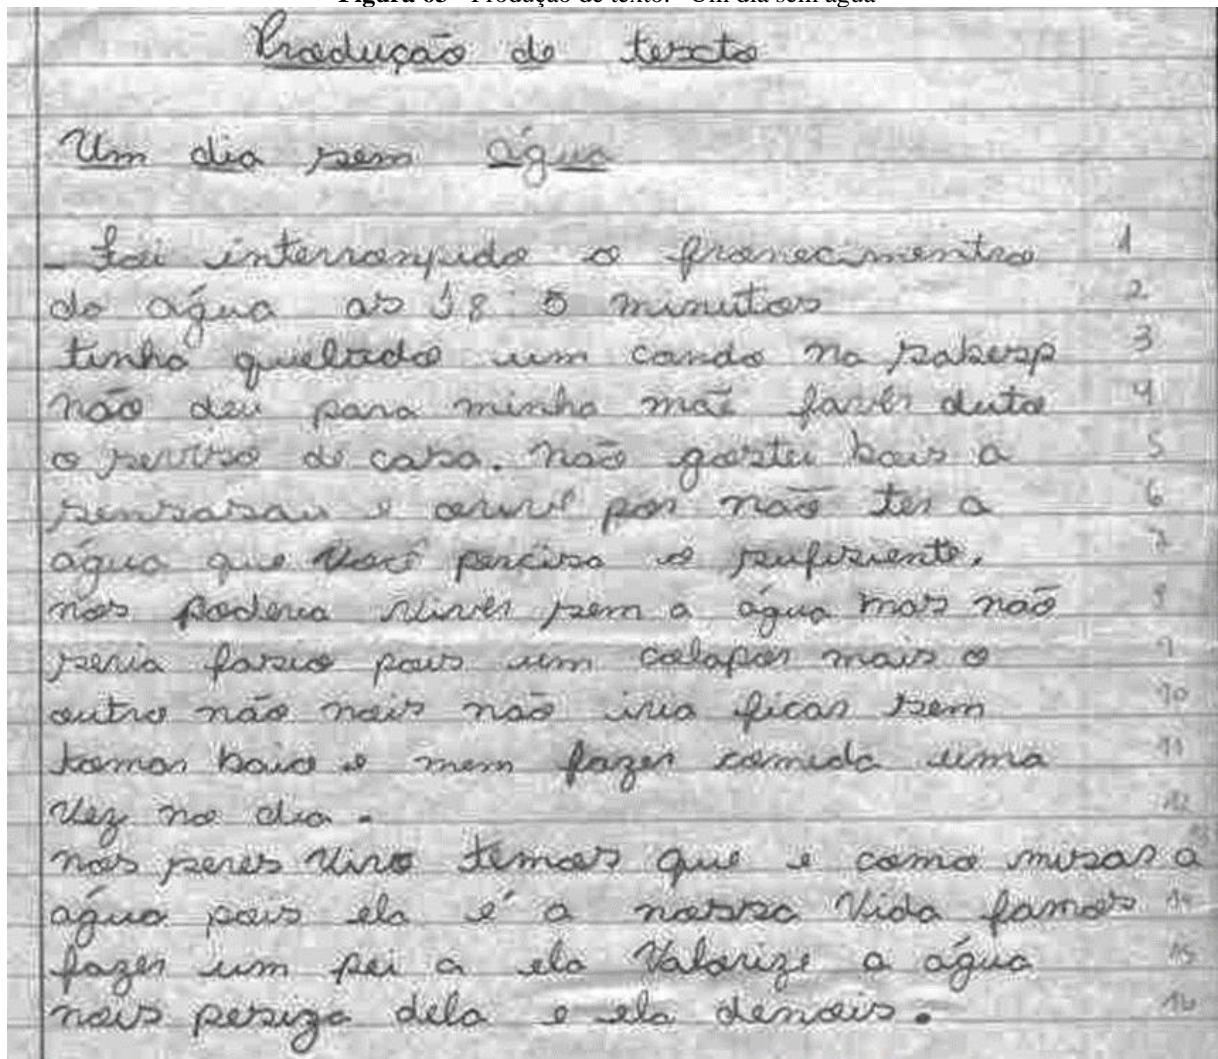 Produção de texto
Um dia sem água
- Foi interronpido o fronecimentro 1
do água as 18 5 minutos 2
tinha quebrado um cando na sabesp 3
não deu para minha mãe faver duto 4
o serviso de casa. não gostei pois a 5
sensasau e orivé por não ter a 6
água que você perciso e sufisiente. 7
nos poderia viver sem a água mas não 8
seria fasio pois um colapor mais o 9
outro não nois não iria ficar sem 10
tomar baio e mem fazer comida uma 11
Vez no dia. 12
nos seres vivo temos que e como misar a 13
água pois ela é a nossa Vida famos 14
fazer um pei a ela Valorize a água 15
nois pesiza dela e ela denois. 16